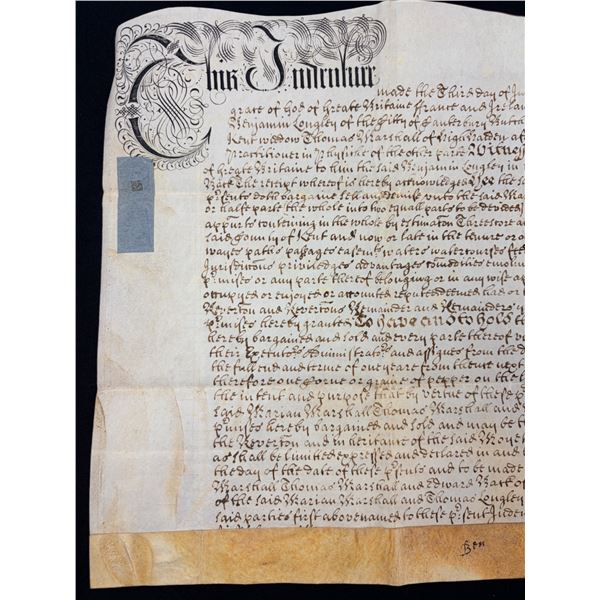 This Indenture made the Third day of Ju
grace of God of Greate Britaine France and Irelan
Benjamin Longley of the City of Canterbury Butch
Kent weddow Thomas Marshall of Highhalden af
Practitioner in Physicke of the other parte Witnes
of Greate Britaine to him the said Benjamin Longley in
the receipt whereof is hereby acknowledged the
p'sents doth bargaine sell and demise unto the said Ma
or halfe parte the whole into two equall parts to be devided
appurts conteining in the whole by estimation Three score a
said County of Kent and now or late in the tenure
wayes paths passages easem'ts waters watercourses
Jurisdictions priviledges advantages comodities emolum
p'misses or any parte thereof belonging or in any wise ap
occupyed or enjoyed or accounted reputed deemed had or
Reverton and Revertons Remander and Remanders
p'misses hereby granted To have and to hold th
hereby bargained and sold and every parte thereof
their Executo'rs Administrato'rs and assignes from the d
the full end and terme of one yeare from thence next
therefore one Corne or graine of pepper on the
the intent and purpose that by vertue of these p
said Marian Marshall Thomas Marshall and
p'misses hereby bargained and sold and may be
the Reverton and inheritance of the said Moyet
as shall be limited expressed and declared in and
the day of the date of these p'sents and to be made
Marshall Thomas Marshall and Edward Mack of
of the said Marian Marshall and Thomas Longley
said parties first abovenamed to these p'sent Inden
Ben